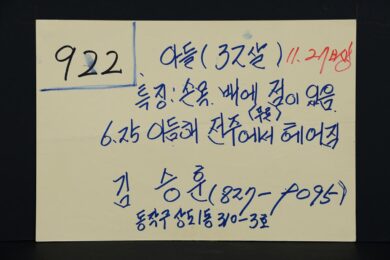 922 아들(32살) 11.27 방영
특징: 손목, 배에 점이 있음.
6.25 이듬해 전주에서 헤어짐
김승훈(827-9095)
동작구 상도1동 310-3호